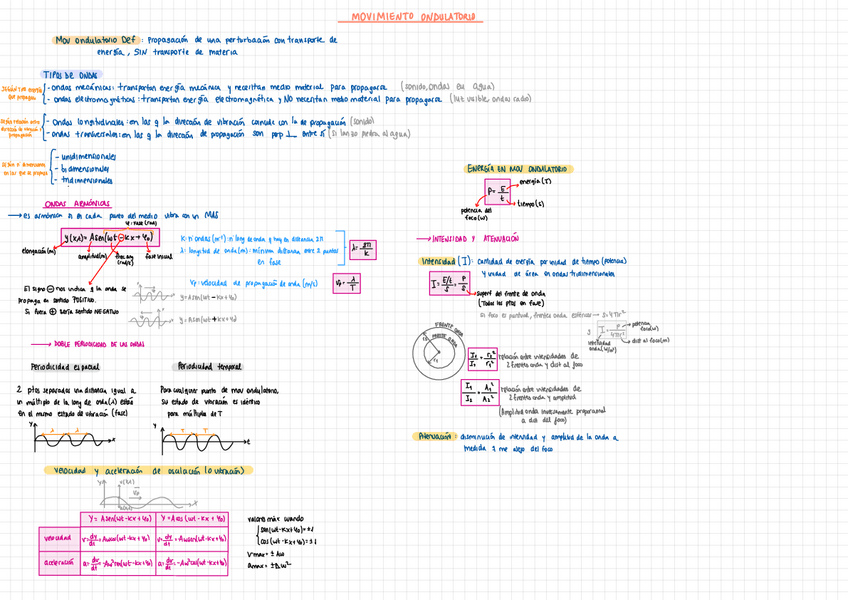 MOVIMIENTO ONDULATORIO
Mov ondulatorio Def: Propagación de una perturbación con transporte de
energía, SIN transporte de materia
TIPOS DE ONDAS
- ondas mecánicas: transportan energía mecánica y necesitan medio material para propagarse (sonido, ondas en agua)
- ondas electromagnéticas: transportan energía electromagnética y NO necesitan medio material para propagarse (luz visible, ondas radio)
- ondas longitudinales: en las q la dirección de vibración coincide con la de propagación (sonido)
- ondas transversales: en las q la dirección de propagación son perp ⊥ entre sí (si lanzo piedra al agua)
- unidimensionales
- bidimensionales
- tridimensionales
ONDAS ARMÓNICAS
→ es armónica si en cada punto del medio vibra con un MAS
φ = fase (rad)
y(x,t) = A sen(ωt − kx + φ0)
elongación(m)
amplitud(m)
frec ang (rad/s)
fase inicial
K: nº ondas (m⁻¹): nº long de onda q hay en distancia 2π
λ: longitud de onda(m): mínima distancia entre 2 puntos
en fase
λ = 2π/k
Vp: velocidad de propagación de onda (m/s)
Vp = λ/T
El signo ⊖ nos indica q la onda se
propaga en sentido POSITIVO.
Si fuera ⊕ sería sentido NEGATIVO
y = A sen(ωt − kx + φ0)
y = A sen(ωt + kx + φ0)
→ DOBLE PERIODICIDAD DE LAS ONDAS
Periodicidad espacial
2 ptos separados un distancia igual a
un múltiplo de la long de onda(λ) están
en el mismo estado de vibración (fase)
y λ λ x
Periodicidad temporal
Para cualquier punto de mov ondulatorio,
su estado de vibración es idéntico
para múltiplo de T
y T T t
velocidad y aceleración de oscilación (o vibración)
Y = A sen(ωt − kx + φ0) Y = A cos(ωt − kx + φ0)
velocidad v = dy/dt = Aω cos(ωt − kx + φ0) v = dy/dt = −Aω sen(ωt − kx + φ0)
aceleración a = dv/dt = −Aω² sen(ωt − kx + φ0) a = dv/dt = −Aω² cos(ωt − kx + φ0)
valores máx cuando
sen(ωt − kx + φ0) = ±1
cos(ωt − kx + φ0) = ±1
Vmax = ± Aω
amax = ± Aω²
ENERGÍA EN MOV ONDULATORIO
P = E/t
energía (J)
tiempo (s)
potencia del
foco (W)
→ INTENSIDAD Y ATENUACIÓN
Intensidad (I): cantidad de energía por unidad de tiempo (potencia)
y unidad de área en ondas tridimensionales
I = E/t / S = P/S
superf del frente de onda
(todos los ptos en fase)
si foco es puntual, frente onda esférico → S = 4πr²
I = P/4πr²
potencia foco(W)
dist al foco(m)
intensidad
FRENTE ONDA
FRENTE ONDA
r2
r1
I2/I1 = r1²/r2²
relación entre intensidades de
2 frentes onda y dist al foco
I1/I2 = A1²/A2²
relación entre intensidades de
2 frentes onda y amplitud
(Amplitud onda inversamente proporcional
a dist del foco)
Atenuación: disminución de intensidad y amplitud de la onda a
medida q me alejo del foco